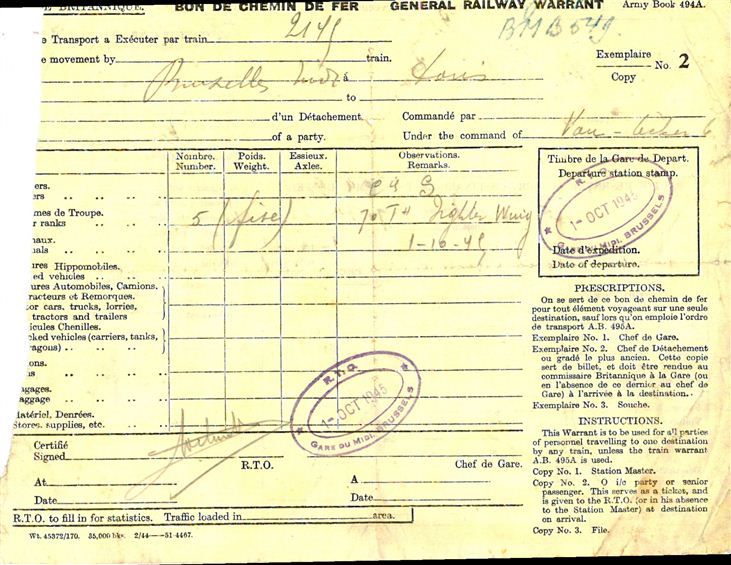 E BRITANNIQUE. BON DE CHEMIN DE FER GENERAL RAILWAY WARRANT Army Book 494A.
BMB549
e Transport a Exécuter par train 2145
e movement by train.
Exemplaire
Copy No. 2
Bruxelles Midi á Paris
to
d'un Détachement. Commandé par
of a party. Under the command of Van-
Nombre. Poids. Essieux. Observations.
Number. Weight. Axles. Remarks.
Timbre de la Gare de Depart.
Departure station stamp.
R.T.O.
1-OCT 1945
GARE DU MIDI. BRUSSELS
Date d'expédition.
Date of departure.
ers.
ers
mes de Troupe.
r ranks 5 (five) 70TH Fighter Wing
naux.
nals 1-10-45
ures Hippomobiles.
ked vehicles
ures Automobiles, Camions.
racteurs et Remorques.
tor cars. trucks, lorries,
tractors and trailers
icules Chenilles.
cked vehicles (carriers, tanks,
ragons)
ons.
ns
agages.
aggage
Matériel, Denrées.
Stores. supplies, etc.
R.T.O.
1-OCT 1945
GARE DU MIDI. BRUSSELS
Certifié
Signed
R.T.O. Chef de Gare.
At A
Date Date
R.T.O. to fill in for statistics. Traffic loaded in area.
Wt. 45372/170. 35,000 bks. 2/44——51-4467.
PRESCRIPTIONS.
On se sert de ce bon de chemin de fer
pour tout élément voyageant sur une seule
destination, sauf lors qu'on emploie l'ordre
de transport A.B. 495A.
Exemplaire No. 1. Chef de Gare.
Exemplaire No. 2. Chef de Détachement
ou gradé le plus ancien. Cette copie
sert de billet, et doit être rendue au
commissaire Britannique à la Gare (ou
en l'absence de ce dernier au chef de
Gare) à l'arrivée à la destination.
Exemplaire No. 3. Souche.
INSTRUCTIONS.
This Warrant is to be used for all parties
of personnel travelling to one destination
by any train, unless the train warrant
A.B. 495A is used.
Copy No. 1. Station Master.
Copy No. 2. O i/c party or senior
passenger. This serves as a ticket, and
is given to the R.T.O. (or in his absence
to the Station Master) at destination
on arrival.
Copy No. 3. File.